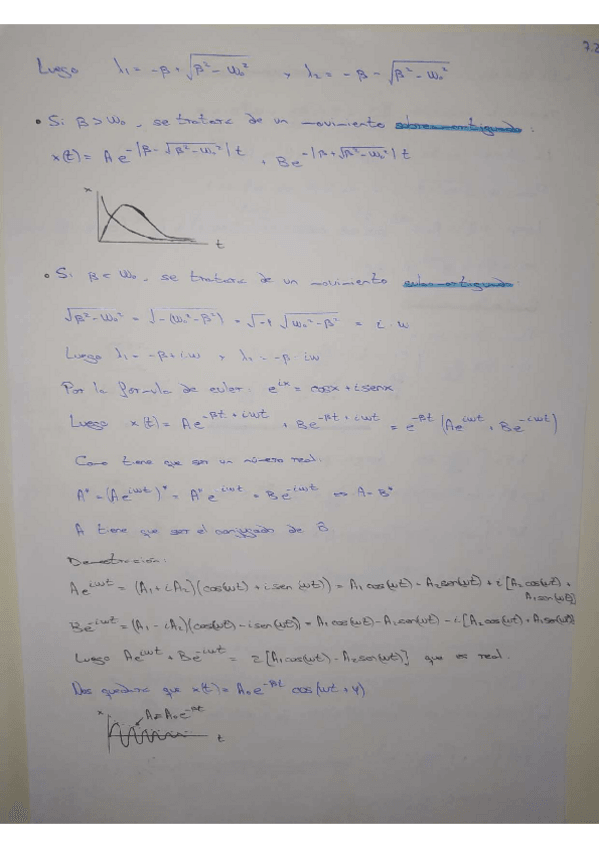 7.2
Luego λ₁ = -β + √(β² - ω₀²) y λ₂ = -β - √(β² - ω₀²)
• Si β > ω₀, se tratará de un movimiento sobreamortiguado:
x(t) = A e^(-|β - √(β² - ω₀²)|t) + B e^(-|β + √(β² - ω₀²)|t)
x
t
• Si β < ω₀, se tratará de un movimiento subamortiguado:
√(β² - ω₀²) = √(-(ω₀² - β²)) = √-1 √(ω₀² - β²) = i·ω
Luego λ₁ = -β + iω y λ₂ = -β - iω
Por la fórmula de euler: e^(ix) = cosx + i senx
Luego x(t) = A e^(-βt + iωt) + B e^(-βt + iωt) = e^(-βt) (A e^(iωt) + B e^(-iωt))
Como tiene que ser un número real:
A* = (A e^(iωt))* = A* e^(-iωt) = B e^(-iωt) ⇔ A = B*
A tiene que ser el conjugado de B.
Demostración:
A e^(iωt) = (A₁ + iA₂)(cos(ωt) + i sen(ωt)) = A₁ cos(ωt) - A₂ sen(ωt) + i [A₂ cos(ωt) +
A₁ sen(ωt)]
B e^(-iωt) = (A₁ - iA₂)(cos(ωt) - i sen(ωt)) = A₁ cos(ωt) - A₂ sen(ωt) - i [A₂ cos(ωt) + A₁ sen(ωt)]
Luego A e^(iωt) + B e^(-iωt) = 2 [A₁ cos(ωt) - A₂ sen(ωt)] que es real.
Nos quedará que x(t) = A₀ e^(-βt) cos(ωt + φ)
x
A = A₀ e^(-βt)
t